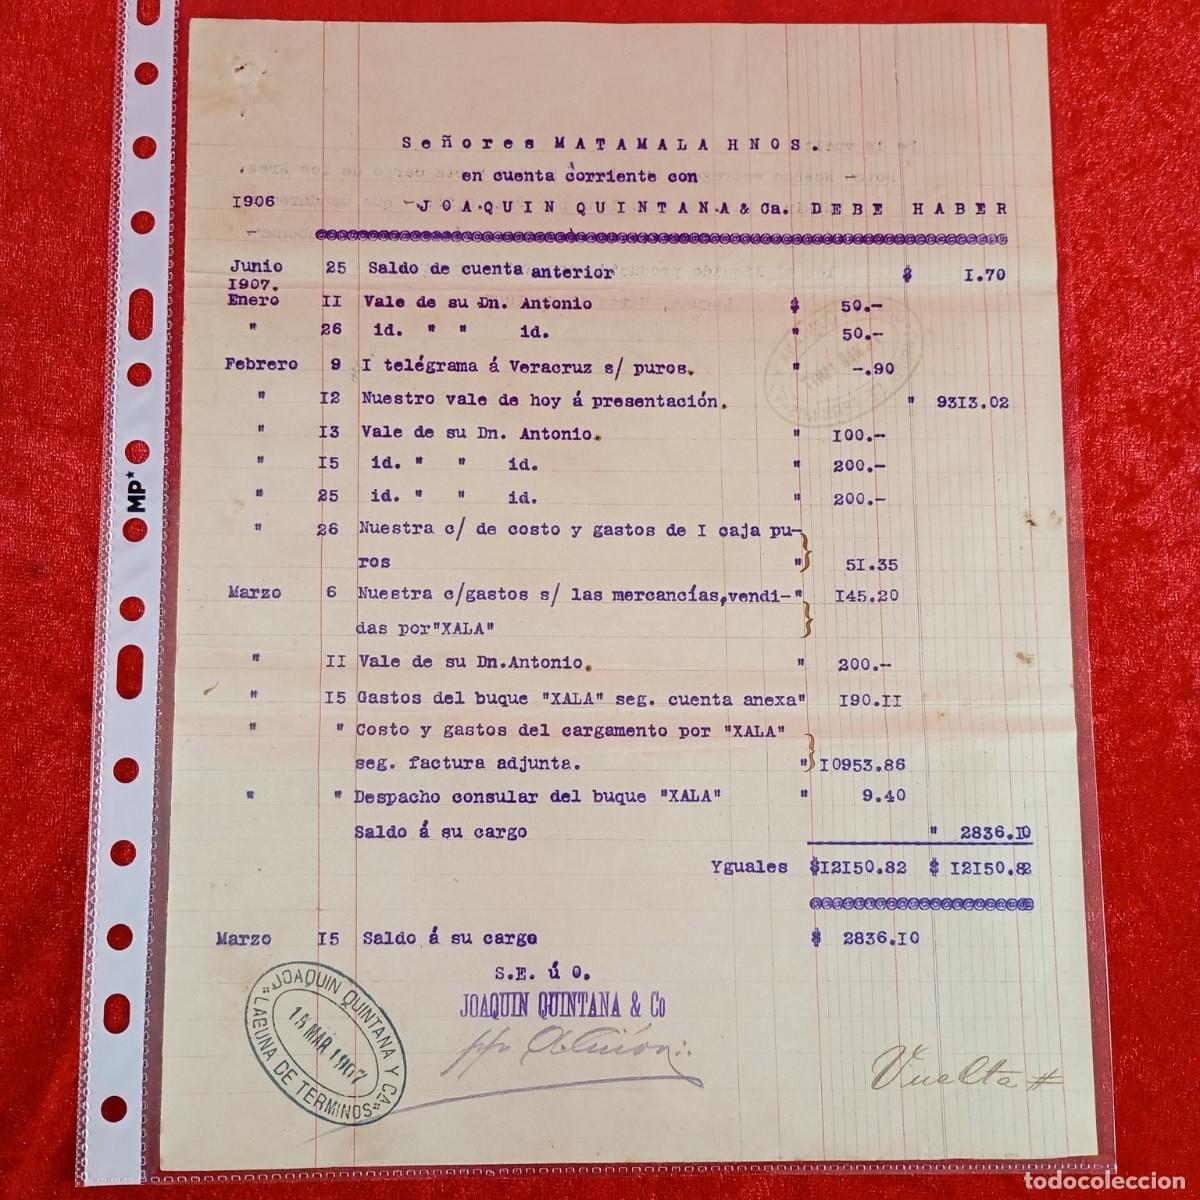 Señores MATAMALA HNOS.
en cuenta córriente con
1906 JOAQUIN QUINTANA & Ca. DEBE HABER
Junio 25 Saldo de cuenta anterior $ I.70
1907.
Enero II Vale de su Dn. Antonio $ 50.-
" 26 id. " " id. " 50.-
Febrero 9 I telégrama á Veracruz s/ puros. " -.90
" I2 Nuestro vale de hoy á presentación. " 9313.02
" I3 Vale de su Dn. Antonio. " I00.-
" I5 id. " " id. " 200.-
" 25 id. " " id. " 200.-
" 26 Nuestra c/ de costo y gastos de I caja pu-
ros " 5I.35
Marzo 6 Nuestra c/gastos s/ las mercancías,vendi-" I45.20
das por"XALA"
" II Vale de su Dn.Antonio. " 200.-
" I5 Gastos del buque "XALA" seg. cuenta anexa" I90.II
" " Costo y gastos del cargamento por "XALA"
seg. factura adjunta. " I0953.86
" " Despacho consular del buque "XALA" " 9.40
Saldo á su cargo " 2836.I0
Yguales $I2I50.82 $ I2I50.82
Marzo I5 Saldo á su cargo $ 2836.I0
S.E. ú O.
JOAQUIN QUINTANA & Co
JOAQUIN QUINTANA Y CA
15 MAR 1907
LAGUNA DE TERMINOS
Vuelta #
MP
todocoleccion